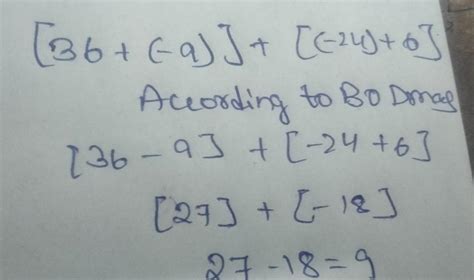 [36 + (-9)] + [(-24) + 6]
According to BODmas
[36 - 9] + [-24 + 6]
[27] + [-18]
27 - 18 = 9